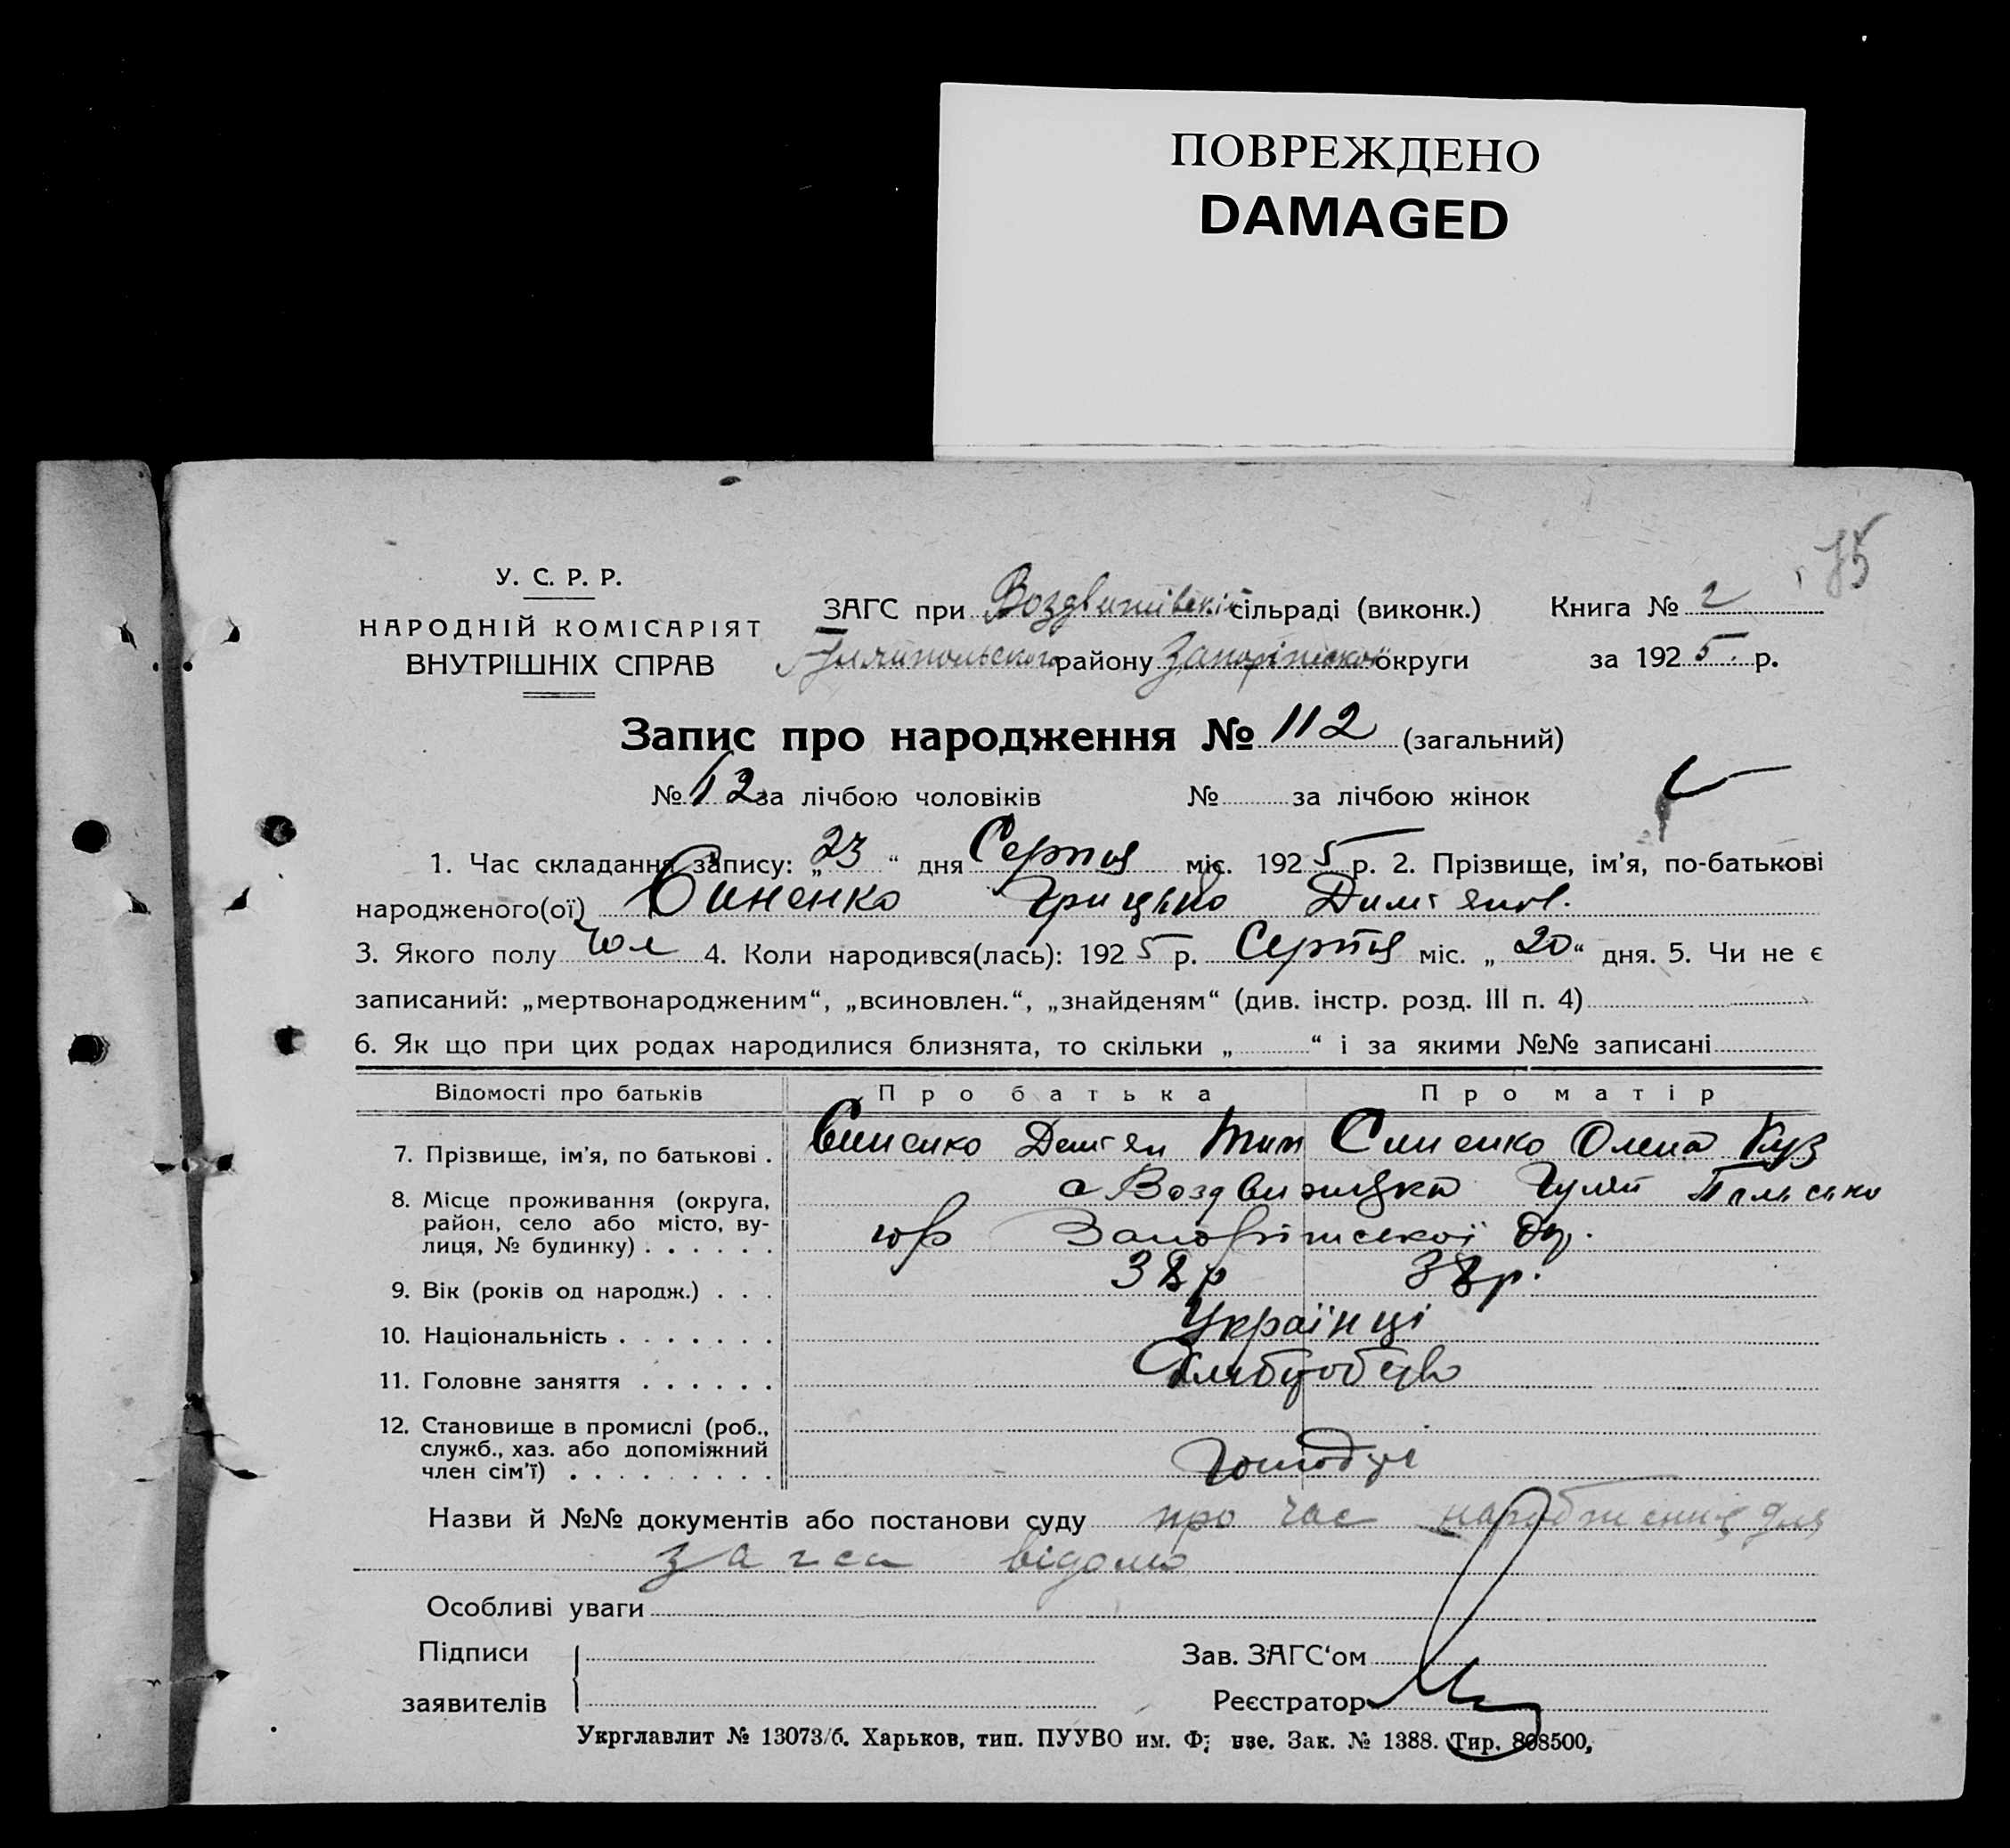 ПОВРЕЖДЕНО
DAMAGED
75
У. С. Р. Р.
НАРОДНІЙ КОМІСАРІЯТ
ВНУТРІШНІХ СПРАВ
ЗАГС при Воздвижівській сільраді (виконк.)
Книга № 2
Гуляйпольського району Запоріжської округи
за 1925 р.
Запис про народження № 112 (загальний)
№ 62 за лічбою чоловіків № за лічбою жінок
1. Час складання запису: „23“ дня Серпня міс. 1925 р. 2. Прізвище, ім’я, по-батькові
народженого(ої) Синенко Грицько Дем'янов.
3. Якого полу чол 4. Коли народився(лась): 1925 р. Серпня міс. „20“ дня. 5. Чи не є
записаний: „мертвонародженим“, „всиновлен.“, „знайденям“ (див. інстр. розд. III п. 4)
6. Як що при цих родах народилися близнята, то скільки „ “ і за якими №№ записані
Відомості про батьків Про батька Про матір
7. Прізвище, ім’я, по батькові . Синенко Дем'ян Тим Синенко Олена Куз
8. Місце проживання (округа, район, село або місто, вулиця, № будинку) . . . . . . с Воздвижка Гуляй Польсько
го р Запоріжської Окр.
9. Вік (років од народж.) . . . 38 р 38 р.
10. Національність . . . . . . . Українці
11. Головне заняття . . . . . . Хліборобство
12. Становище в промислі (роб., служб., хаз. або допоміжний член сім’ї) . . . . . . . . .
Назви й №№ документів або постанови суду про час народження для
загса відомо
Особливі уваги
Підписи
заявителів
Зав. ЗАГС‘ом
Реєстратор
Укрглавлит № 13073/б. Харьков, тип. ПУУВО им. Зак. № 1388. Тир. 808500,